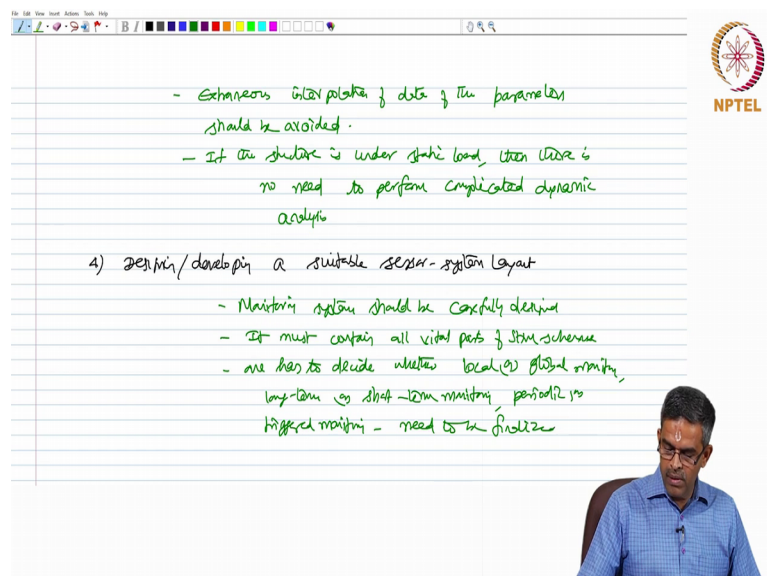 File Edit View Insert Actions Tools Help
B I
NPTEL
- Extraneous interpolation of data of the parameters
should be avoided.
- If the structure is under static load, then there is
no need to perform complicated dynamic
analysis
4) Design/developing a suitable sensor-system layout
- Monitoring system should be carefully designed
- It must contain all vital parts of SHM scheme
- one has to decide whether local (or) global monitoring,
long-term (or) short-term monitoring, periodic (or)
triggered monitoring - need to be finalized